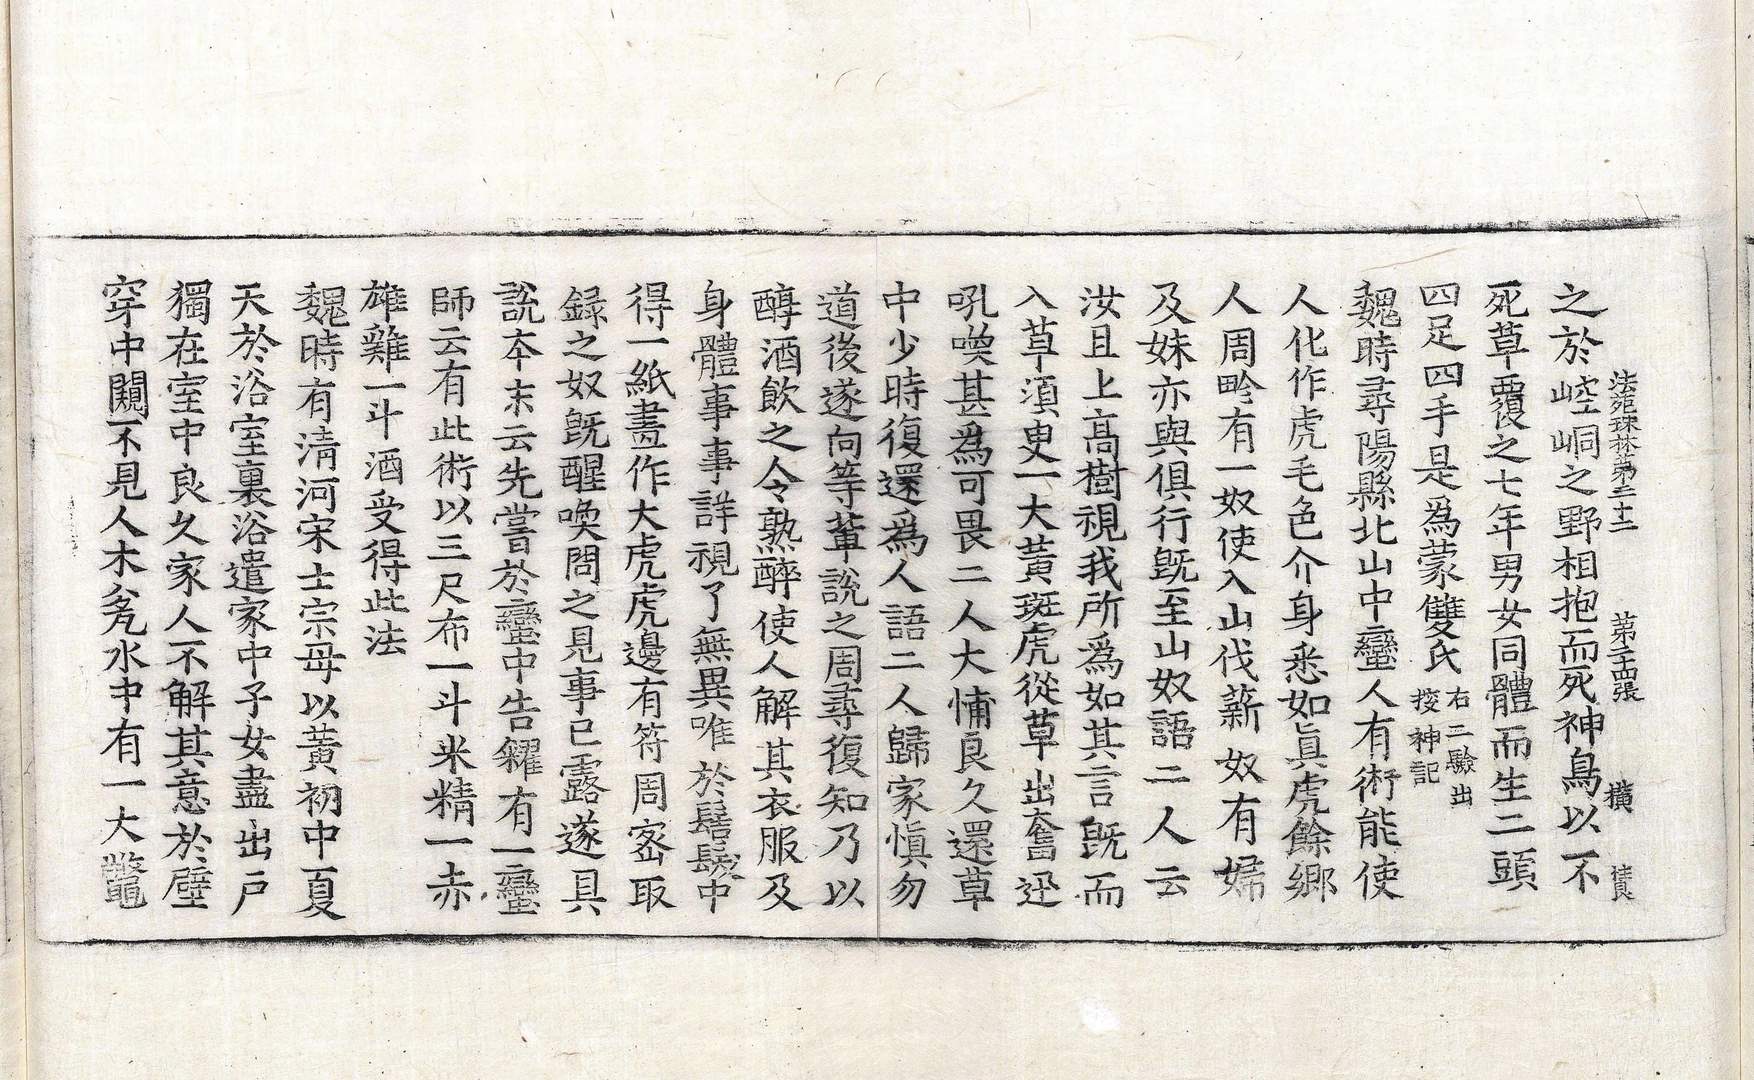 法苑珠林第三十二　第二十四張　橫　
之於崆峒之野相抱而死神鳥以不
死草覆之七年男女同體而生二頭
四足四手是為蒙雙氏右三驗出按神記
魏時尋陽縣北山中蠻人有術能使
人化作虎毛色介身悉如真虎餘鄉
人周眕有一奴使入山伐薪奴有婦
及妹亦與俱行既至山奴語二人云
汝且上高樹視我所為如其言既而
入草須臾一大黃斑虎從草出奮迅
吼喚甚為可畏二人大怖良久還草
中少時復還為人語二人歸家慎勿
道後遂向等輩說之周尋復知乃以
醇酒飲之令熟醉使人解其衣服及
身體事事詳視了無異唯於髻髮中
得一紙畫作大虎虎邊有符周密取
錄之奴既醒喚問之見事已露遂具
說夲末云先嘗於蠻中告糴有一蠻
師云有此術以三尺布一斗米精一赤
雄雞一斗酒受得此法
魏時有清河宋士宗母以黃初中夏
天於浴室裏浴遣家中子女盡出戶
獨在室中良久家人不解其意於壁
穿中闚不見人木瓮水中有一大鼈